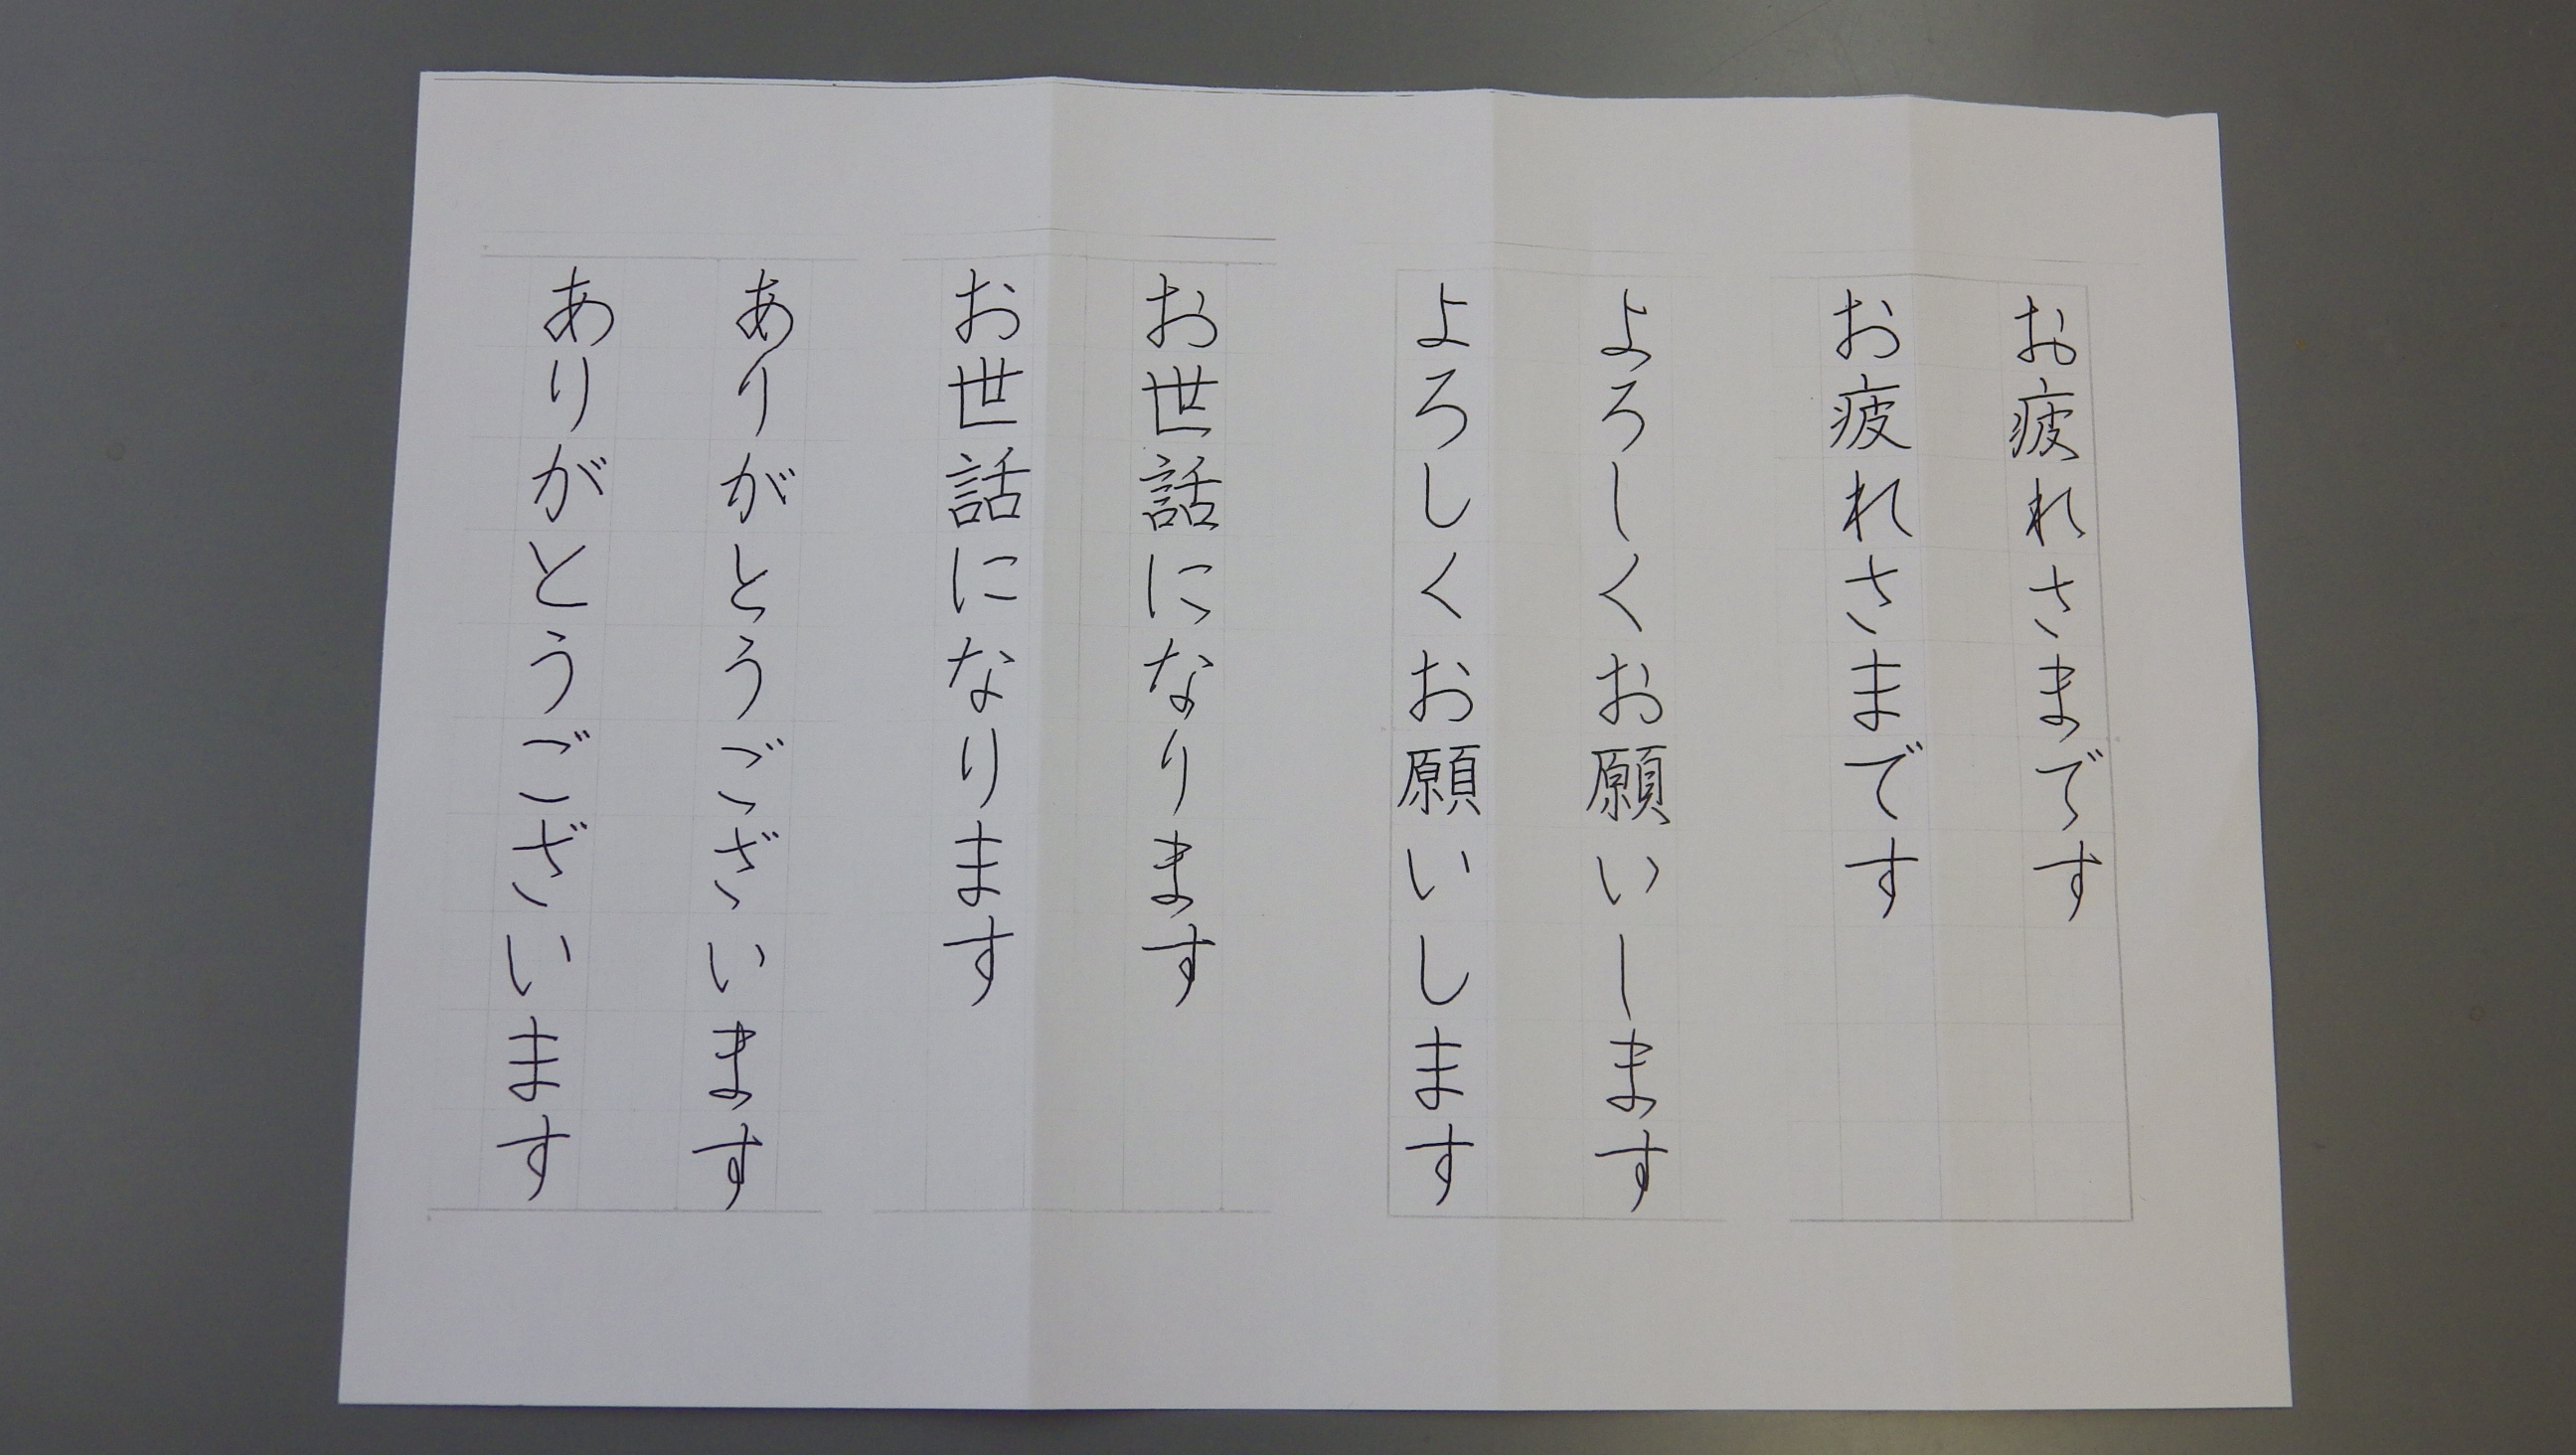 お疲れさまです
お疲れさまです
よろしくお願いします
よろしくお願いします
お世話になります
お世話になります
ありがとうございます
ありがとうございます